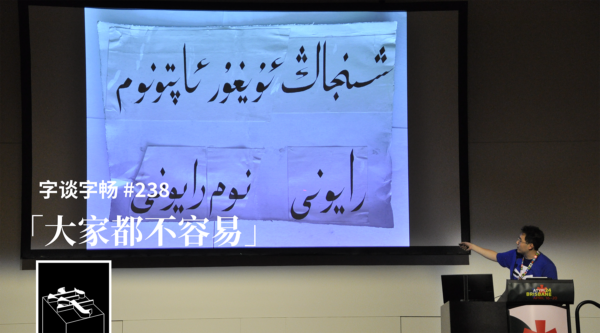 شىنجاڭ ئۇيغۇر ئاپتونوم
رايونى نوم رايونى
字谈字畅 #238
「大家都不容易」
BRISBANE